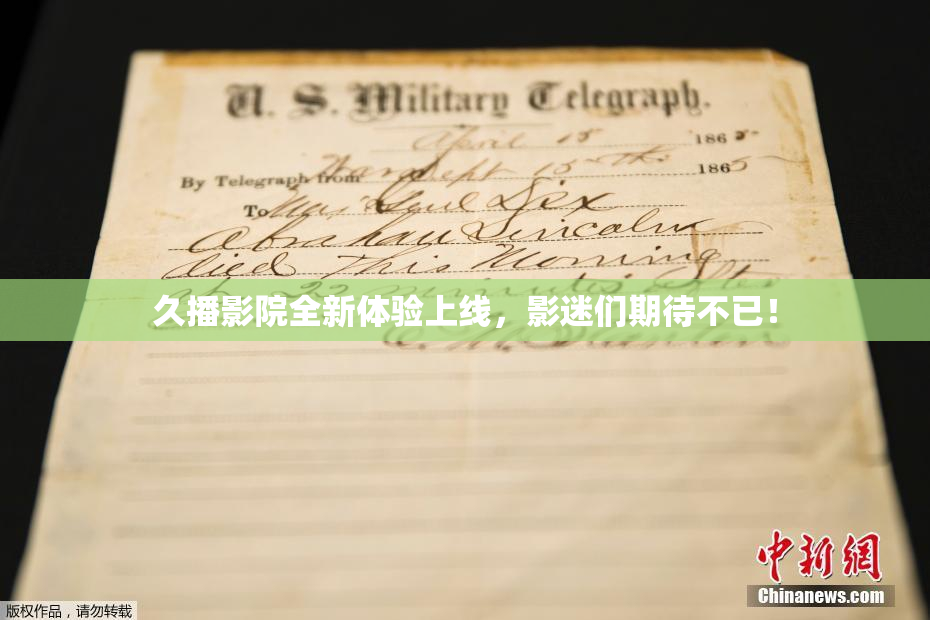 U. S. Military Telegraph.
April 15 1865
By Telegraph from War Dept 15th 1865
To Maj Genl Dix
Abraham Lincoln
died This Morning
at 22 minutes after
久播影院全新体验上线，影迷们期待不已！
中新网
Chinanews.com
版权作品，请勿转载